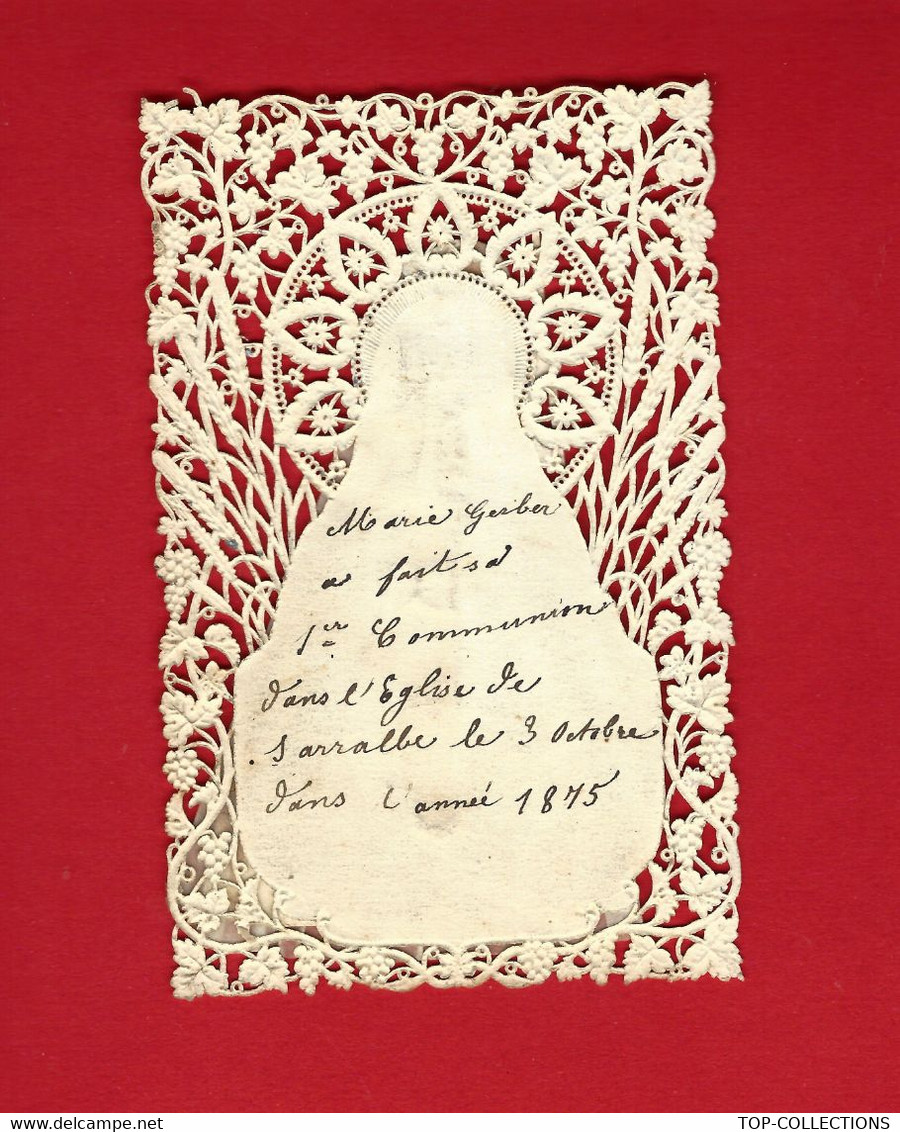 Marie Gerber
a fait sa
1er Communion
dans l'Eglise de
Sarralbe le 3 Octobre
dans l'anneé 1875
TOP-COLLECTIONS